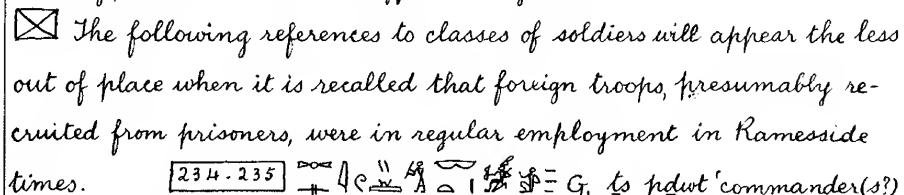 The following references to classes of soldiers will appear the less
out of place when it is recalled that foreign troops, presumably re-
cruited from prisoners, were in regular employment in Ramesside
times. 234.235 G, ṯs pdwt 'commander(s?)